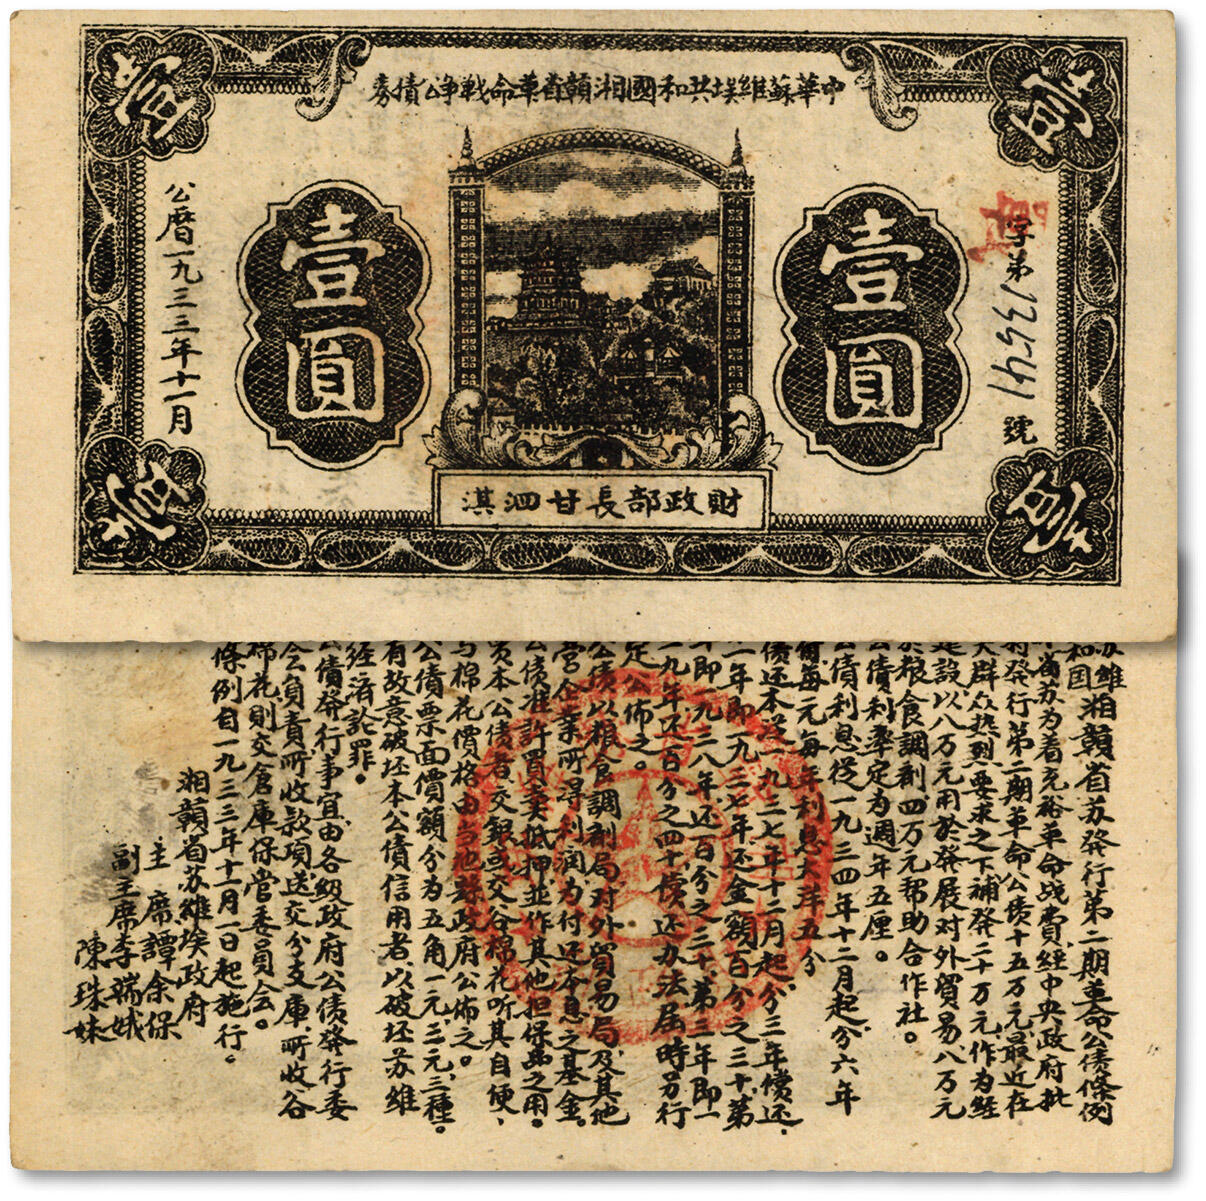 中華蘇維埃共和國湘贛省革命戰爭公債券
壹
壹
字第13541號
壹圓
壹圓
公曆一九三三年十一月
財政部長甘泗淇
壹
壹
苏维
和国湘贛省苏發行第二期革命公債條例
省苏为着充裕革命战費,經中央政府批
发行第二期革命公債十五万元,最近在
大群众热烈要求之下補發二十万元,作为經
建設,以八万元用於發展对外貿易八万元
於粮食調剂四万元帮助合作社。
公債利率定为週年五厘。
公債利息從一九三四年十二月起分六年
每元每年利息大洋五分
債还本從一九三七年十二月起,分三年償还,
一年即一九三七年,还金額百分之三十,第
年即一九三八年,还百分之三十,第三年即一
九年还百分之四十,償还办法屆時另行
定公佈之。
公債以粮食調剂局,对外貿易局及其他
营企業所得利潤为付还本息之基金。
公債准許買卖抵押並作其他担保品之用。
买本公債者交銀或交谷棉花听其自便,
与棉花價格由当地縣政府公佈之。
公債票面價額分为五角一元,三元,三種。
有故意破坯本公債信用者,以破坯苏维
經济論罪。
公債發行事宜,由各級政府公債發行委
会負責,所收款項,送交分支庫,所收谷
棉花則交倉庫保管委員会。
條例自一九三三年十一月一日起施行。
湘贛省苏维埃政府
主席譚余保
副主席李端娥
陳珠妹